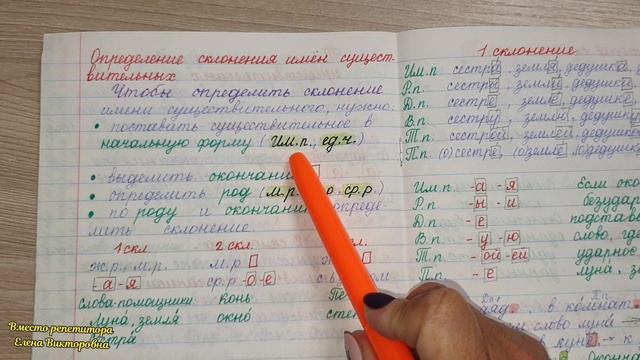 Определение склонения имён сущест-
вительных
Чтобы определить склонение
имени существительного, нужно:
• поставить существительное в
начальную форму (Им.п., ед.ч.)
• выделить окончание
• определить род (м.р. ср.р.
• по роду и окончанию опреде-
лить склонение.
1 скл. 2 скл. скл.
ж.р., м.р. м.р.
-а -я ср.р -о -е
слова-помощники: конь
луна, земля окно
1 склонение
Им.п. сестра, земля, дедушка
Р.п. сестры, земли, дедушки
Д.п. сестре, земле, дедушке
В.п. сестру, землю, дедушку
Т.п. сестрой, землёй, дедушкой
П.п. (о) сестре, (о) земле, (о) дедушке
Им.п. -а -я Если
Р.п. -ы -и безудар
Д.п. -е подстав
В.п. -у -ю слово, где
Т.п. -ой -ей ударное
П.п. -е луна, з
в комнат
слово луна →
Вместо репетитора
Елена Викторовна